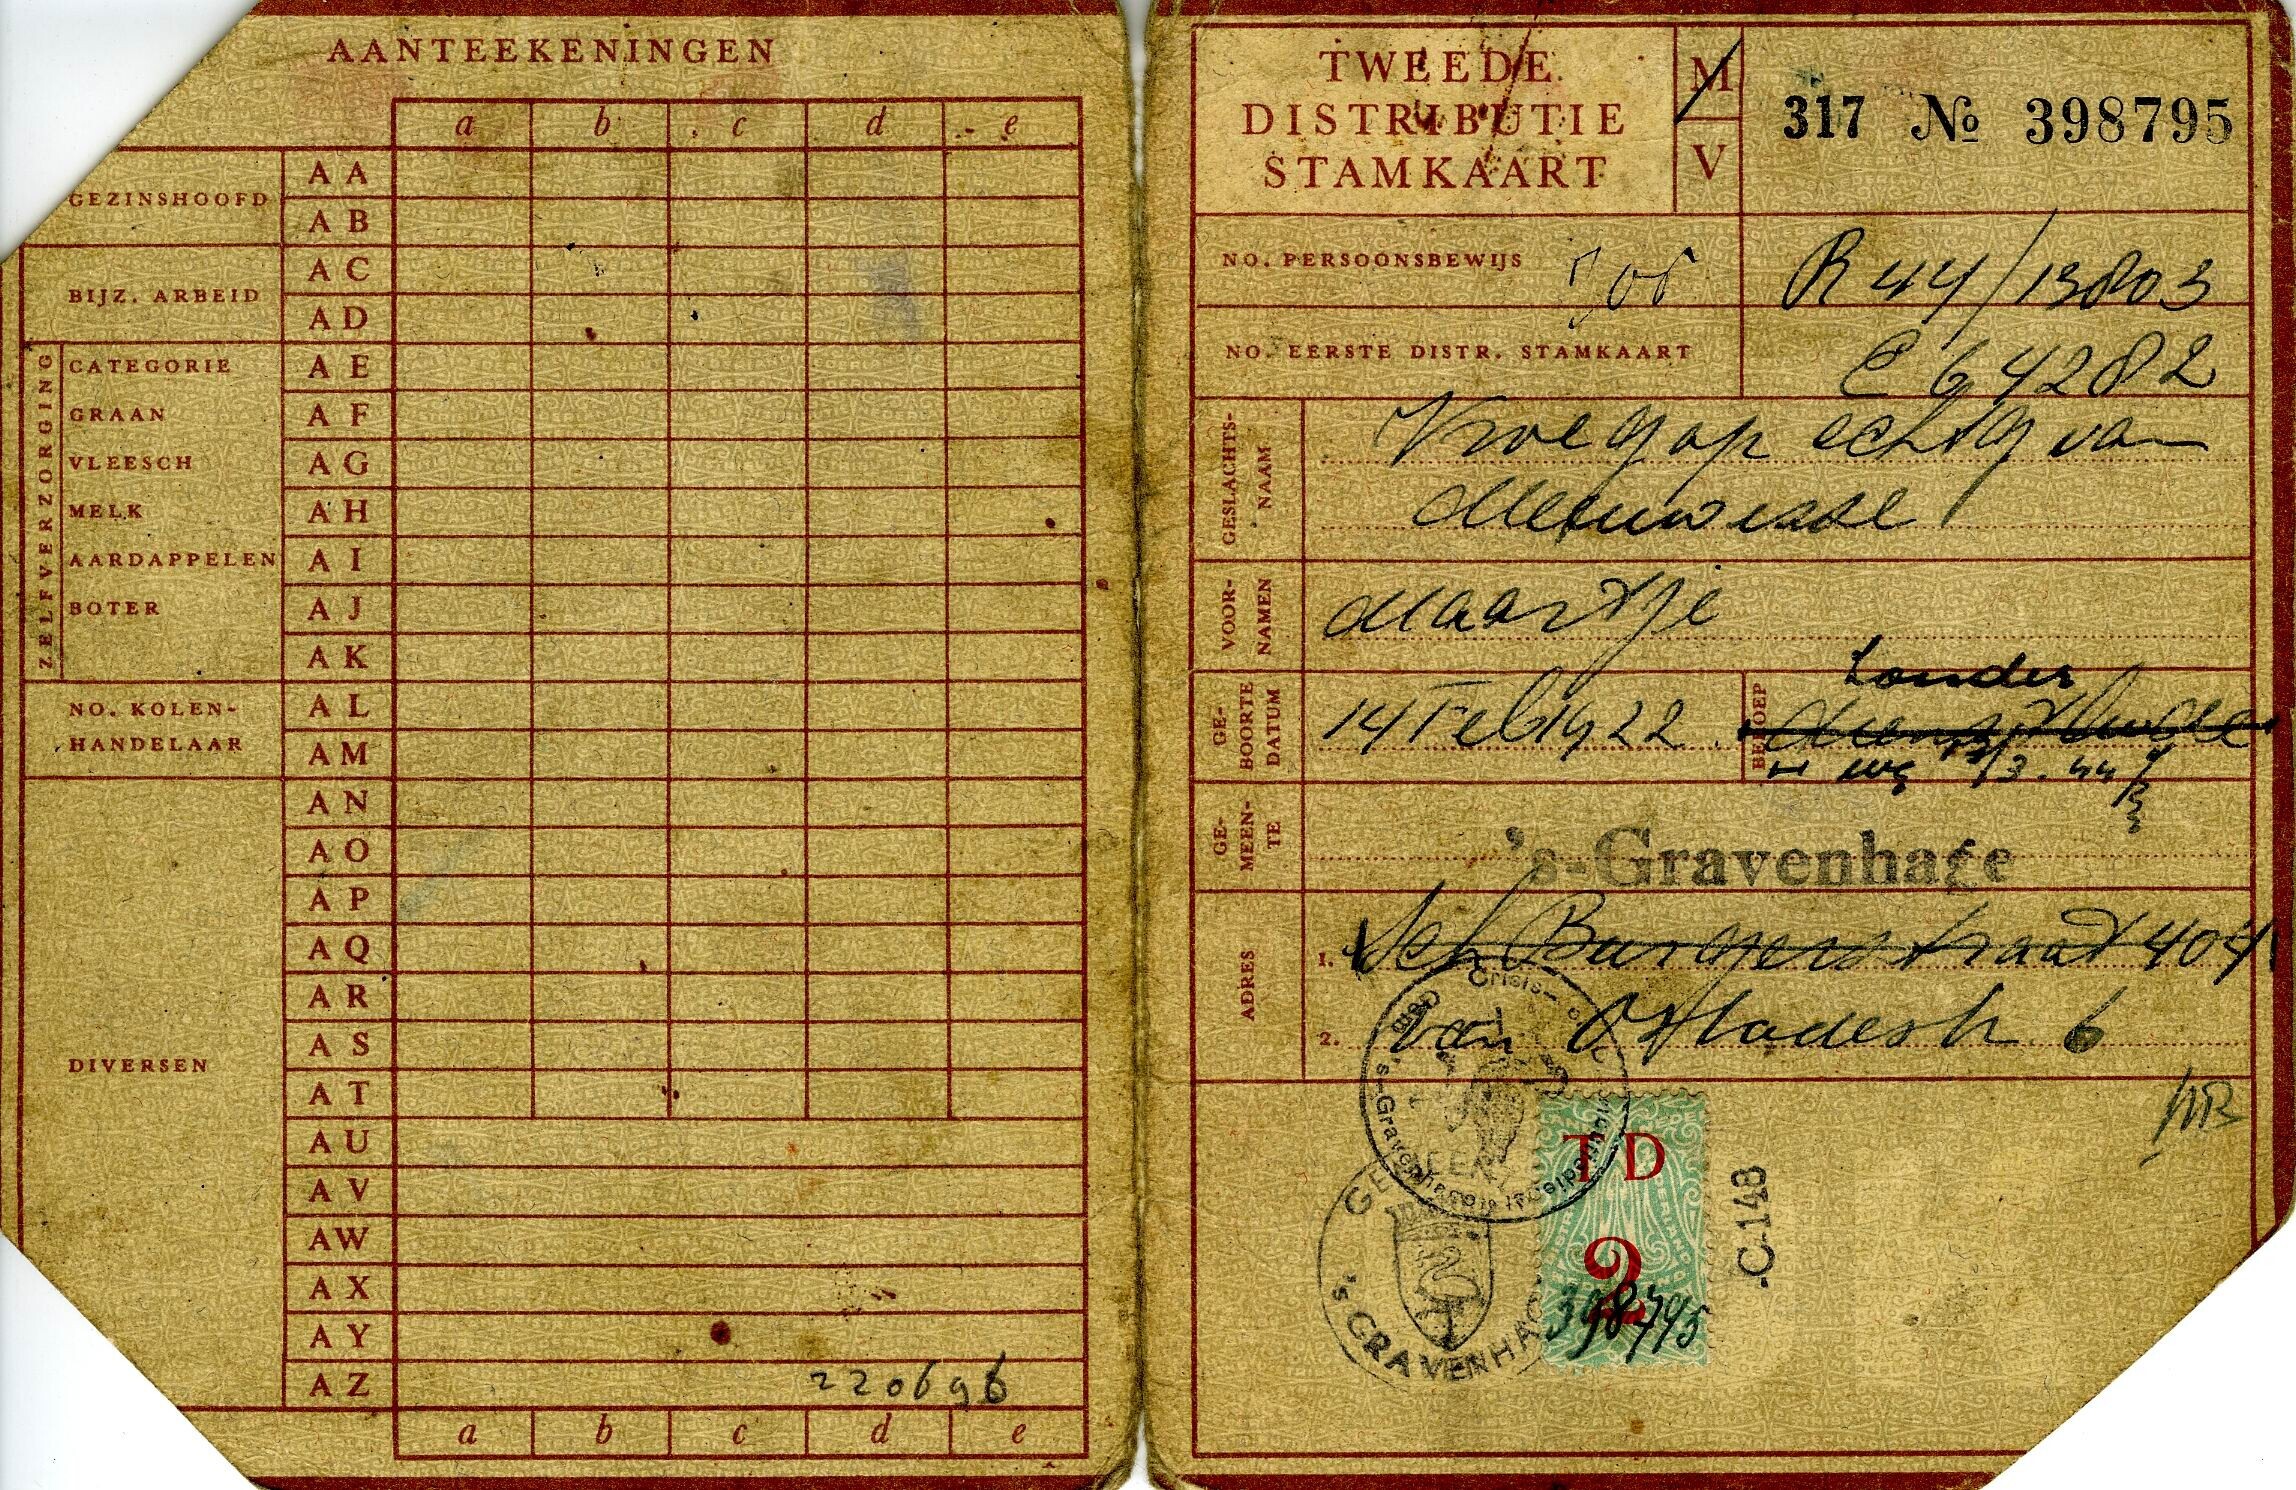 AANTEEKENINGEN
a b c d e
GEZINSHOOFD
A A
A B
BIJZ. ARBEID
A C
A D
ZELFVERZORGING
CATEGORIE A E
GRAAN A F
VLEESCH A G
MELK A H
AARDAPPELEN A I
BOTER A J
A K
NO. KOLEN-
HANDELAAR
A L
A M
A N
A O
A P
A Q
A R
A S
DIVERSEN
A T
A U
A V
A W
A X
A Y
A Z 220696
a b c d e
TWEEDE
DISTRIBUTIE
STAMKAART
M
V
317 No 398795
NO. PERSOONSBEWIJS R 44/13803
NO. EERSTE DISTR. STAMKAART E 64282
GESLACHTS-
NAAM
Vroegop echtg van
Meeuwisse
VOOR-
NAMEN
Maartje
GE-
BOORTE
DATUM
14 Feb 1922
BEROEP
zonder
GE-
MEEN-
TE
's-Gravenhage
ADRES
1. Sch Burgerstraat 404
2. van Ostadestr 6
Crisis-
's-Gravenhage
GEMEENTE
'S GRAVENHAGE
T D
2
398795
C.148